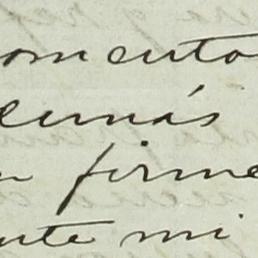 omento
emás
n firme
nte mi